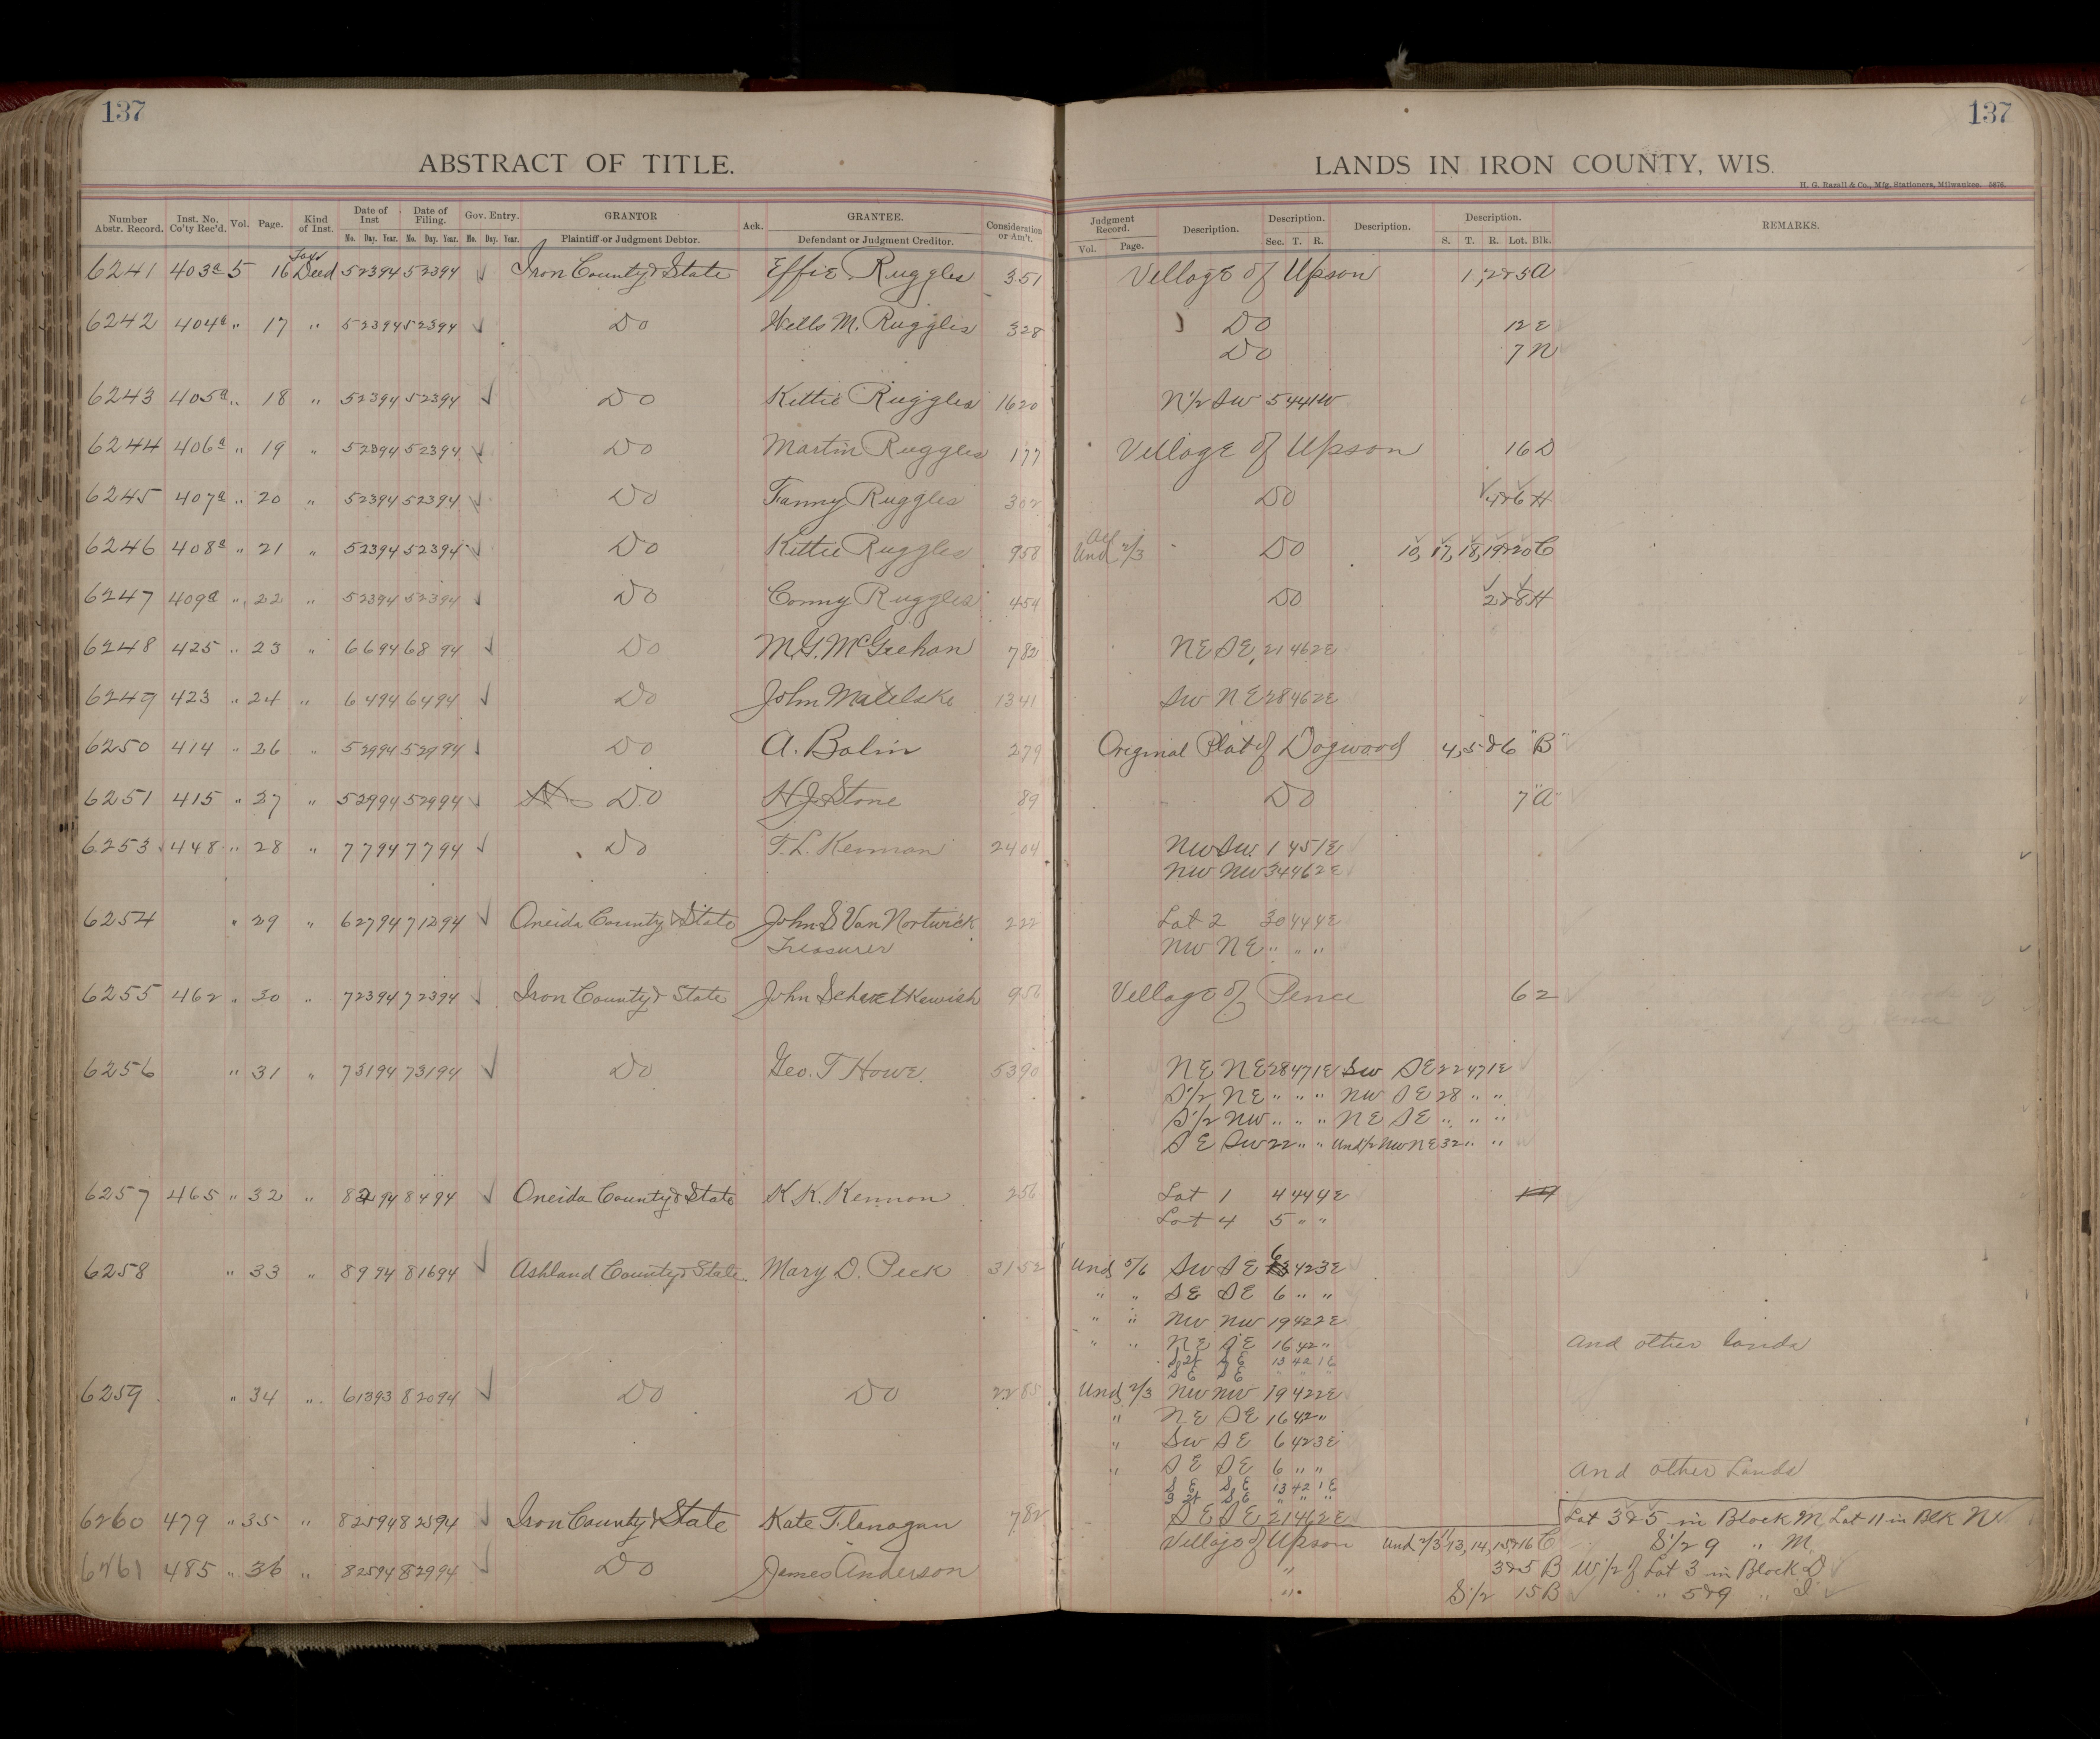 137
137
ABSTRACT OF TITLE.
LANDS IN IRON COUNTY, WIS.
H. G. Razall & Co., Mfg. Stationers, Milwaukee. 5876.
Number Abstr. Record. Inst. No. Co'ty Rec'd. Vol. Page. Kind of Inst. Date of Inst Mo. Day. Year. Date of Filing. Mo. Day. Year. Gov. Entry. Mo. Day. Year. GRANTOR Plaintiff or Judgment Debtor. Ack. GRANTEE. Defendant or Judgment Creditor. Consideration or Am't. Judgment Record. Vol. Page. Description. Description. Sec. T. R. Description. Description. S. T. R. Lot. Blk. REMARKS.
6241 403a 5 16 Tax Deed 5 23 94 5 23 94 ✓ Iron County & State Effie Ruggles 351 Village of Upson 1, 2 & 5 A
6242 404a " 17 " 5 23 94 5 23 94 ✓ Do Wells M. Ruggles 328 Do 12 E
Do 7 N
6243 405a " 18 " 5 23 94 5 23 94 ✓ Do Kittie Ruggles 1620 N 1/2 SW 5 44 1W
6244 406a " 19 " 5 23 94 5 23 94 ✓ Do Martin Ruggles 177 Village of Upson 16 D
6245 407a " 20 " 5 23 94 5 23 94 ✓ Do Fanny Ruggles 302 Do 4 & 6 H
6246 408a " 21 " 5 23 94 5 23 94 ✓ Do Kittie Ruggles 958 Und 2/3 Do 10, 17, 18, 19 & 20 C
6247 409a " 22 " 5 23 94 5 23 94 ✓ Do Conny Ruggles 454 Do 2 & 8 H
6248 425 " 23 " 6 6 94 6 8 94 ✓ Do M. G. McGeehan 782 NE SE 21 46 2E
6249 423 " 24 " 6 4 94 6 4 94 ✓ Do John Matelske 1341 SW NE 28 46 2E
6250 414 " 26 " 5 29 94 5 29 94 ✓ Do A. Bolin 279 Original Plat of Dogwood 4, 5 & 6 "B"
6251 415 " 27 " 5 29 94 5 29 94 ✓ Do H J Stone 89 Do 7 "A"
6253 448 " 28 " 7 7 94 7 7 94 ✓ Do T. L. Kennan 2404 NW SW 1 45 1E
NW NW 34 46 2E
6254 " 29 " 6 27 94 7 12 94 ✓ Oneida County & State John S Van Nortwick 222 Lot 2 30 44 4E
Treasurer NW NE " " "
6255 462 " 30 " 7 23 94 7 23 94 ✓ Iron County & State John 956 Village of Pence 6 2
6256 " 31 " 7 31 94 7 31 94 ✓ Do Geo. T Howe 5390 NE NE 28 47 1E SW SE 22 47 1E
S 1/2 NE " " " NW SE 28 " "
S 1/2 NW " " " NE SE " " "
SE SW 22 " " Und 1/2 NW NE 32 " "
6257 465 " 32 " 8 2 94 8 4 94 ✓ Oneida County & State K. K. Kennan 256 Lot 1 4 44 4E
Lot 4 5 " "
6258 " 33 " 8 9 94 8 16 94 ✓ Ashland County & State Mary D. Peck 3152 Und 5/6 SW SE 6 42 3E
" " SE SE 6 " "
" " NW NW 19 42 2E
" " NE SE 16 42 " And other lands
SW SE 13 42 1E
SE SE " " "
6259 " 34 " 6 13 93 8 20 94 ✓ Do Do 2285 Und 2/3 NW NW 19 42 2E
" NE SE 16 42 "
" SW SE 6 42 3E
" SE SE 6 " " And other Lands
SE SE 13 42 1E
SW SE " " "
6260 479 " 35 " 8 25 94 8 25 94 ✓ Iron County & State Kate Flanagan 782 SE SE 21 46 2E Lot 3 & 5 in Block M Lot 11 in Blk N
Village of Upson Und 2/3 13, 14, 15 & 16 C S 1/2 9 " M
6261 485 " 36 8 25 94 8 29 94 ✓ Do James Anderson " 3 & 5 B W 1/2 of Lot 3 in Block D
" S 1/2 15 B " 5 & 9 " I